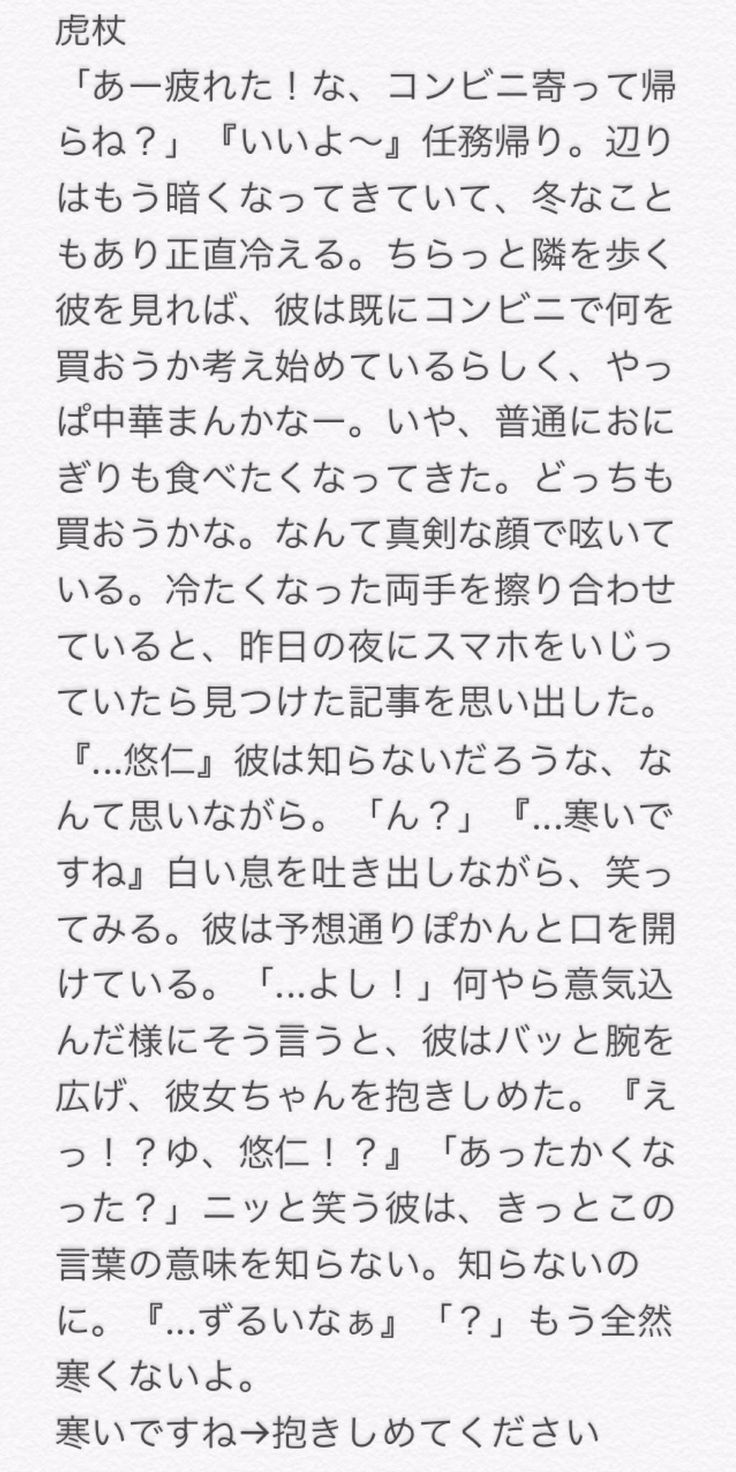 虎杖
「あー疲れた！な、コンビニ寄って帰
らね？」『いいよ〜』任務帰り。辺り
はもう暗くなってきていて、冬なこと
もあり正直冷える。ちらっと隣を歩く
彼を見れば、彼は既にコンビニで何を
買おうか考え始めているらしく、やっ
ぱ中華まんかなー。いや、普通におに
ぎりも食べたくなってきた。どっちも
買おうかな。なんて真剣な顔で呟いて
いる。冷たくなった両手を擦り合わせ
ていると、昨日の夜にスマホをいじっ
ていたら見つけた記事を思い出した。
『...悠仁』彼は知らないだろうな、な
んて思いながら。「ん？」『...寒いで
すね』白い息を吐き出しながら、笑っ
てみる。彼は予想通りぽかんと口を開
けている。「...よし！」何やら意気込
んだ様にそう言うと、彼はバッと腕を
広げ、彼女ちゃんを抱きしめた。『え
っ！？ゆ、悠仁！？』「あったかくな
った？」ニッと笑う彼は、きっとこの
言葉の意味を知らない。知らないの
に。『...ずるいなぁ』「？」もう全然
寒くないよ。
寒いですね→抱きしめてください